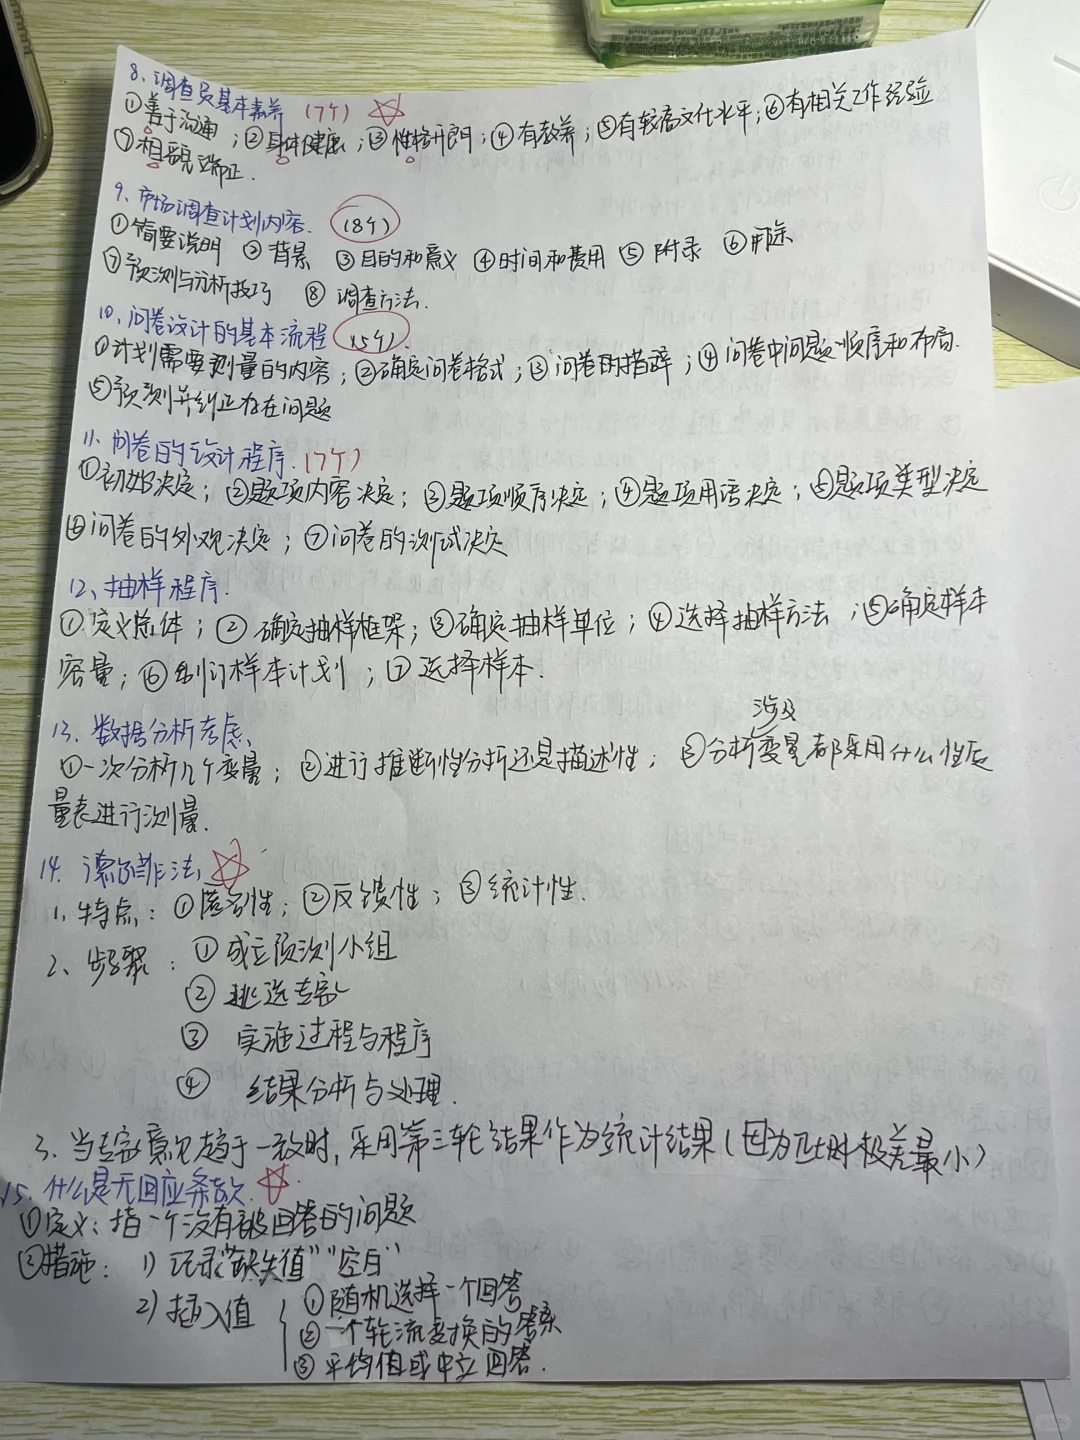 8、调查员基本素养 (7个)
①善于沟通；②身体健康；③性格开朗；④有教养；⑤有较高文化水平；⑥有相关工作经验
⑦相貌端正.
9、市场调查计划内容. (8个)
①简要说明 ②背景 ③目的和意义 ④时间和费用 ⑤附录 ⑥用途
⑦预测与分析技巧 ⑧调查方法.
10、问卷设计的基本流程 (5个).
①计划需要测量的内容；②确定问卷格式；③问卷的措辞；④问卷中问题顺序和布局.
⑤预测并纠正存在问题
11、问卷的设计程序. (7个)
①初始决定；②题项内容决定；③题项顺序决定；④题项用语决定；⑤题项类型决定
⑥问卷的外观决定；⑦问卷的测试决定
12、抽样程序.
①定义总体；②确定抽样框架；③确定抽样单位；④选择抽样方法；⑤确定样本
容量；⑥制订样本计划；⑦选择样本.
涉及
13、数据分析考虑、
①一次分析几个变量；②进行推断性分析还是描述性；③分析变量都采用什么性质
量表进行测量.
14、德尔菲法
1、特点：①匿名性；②反馈性；③统计性.
2、步骤：①成立预测小组
②挑选专家
③实施过程与程序
④结果分析与处理.
3、当专家意见趋于一致时,采用第三轮结果作为统计结果(因为此时极差最小)
15、什么是无回应条款.
①定义：指一个没有被回答的问题
②措施：1) 记录"缺失值""空白"
2) 插入值 ①随机选择一个回答
②一个轮流变换的答案
③平均值或中立回答.